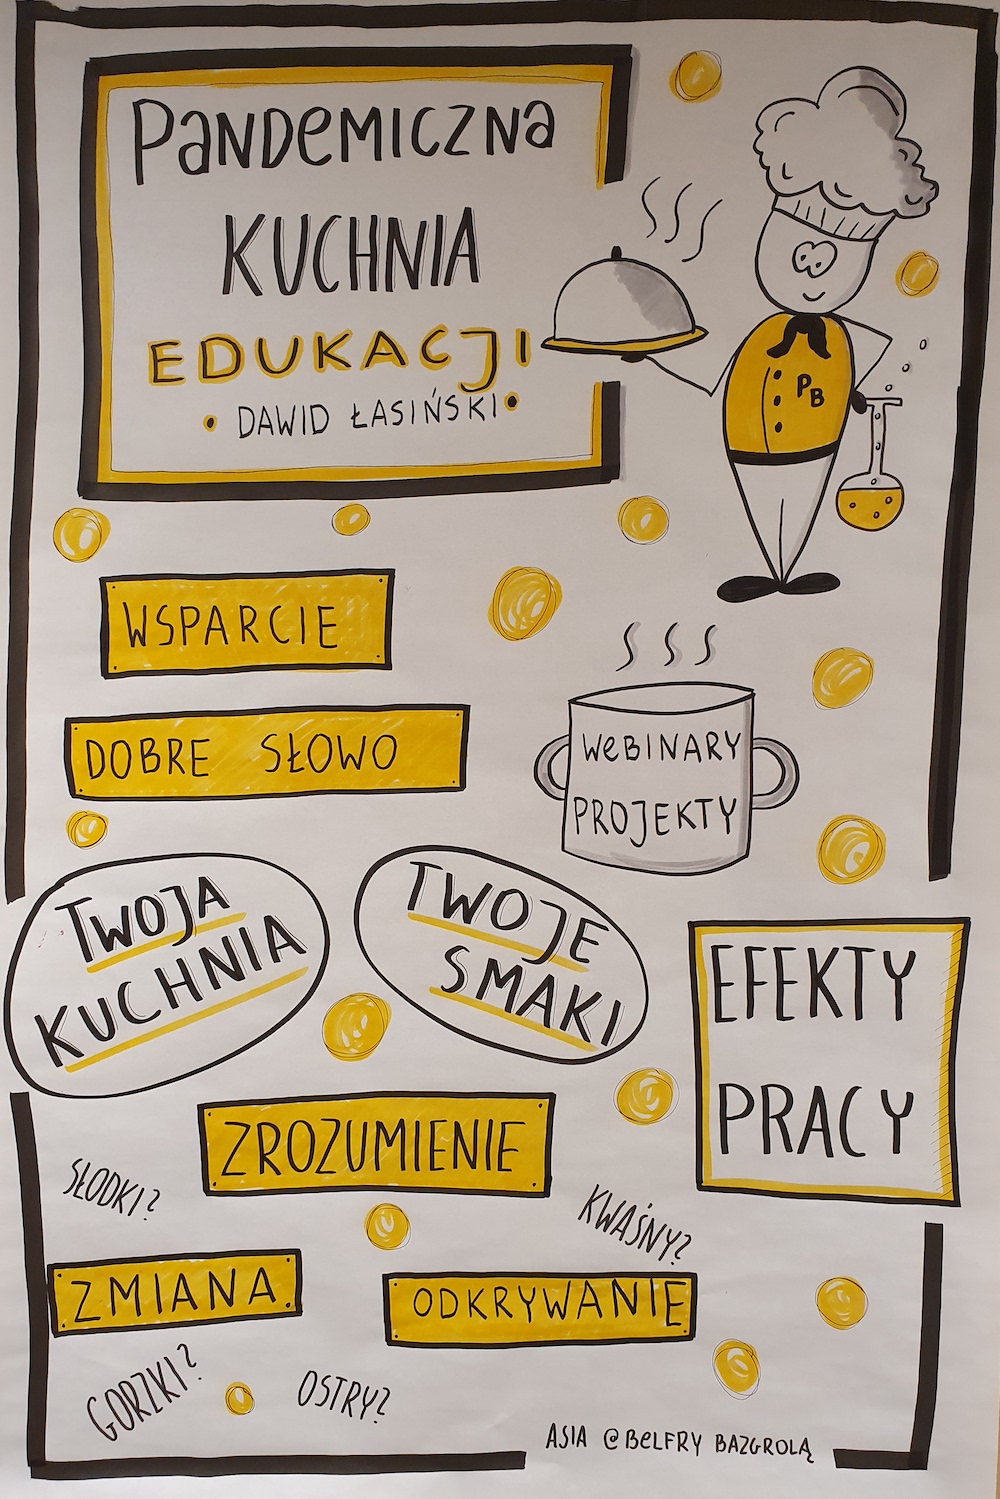 PANDEMICZNA
KUCHNIA
EDUKACJI
• DAWID ŁASIŃSKI •
PB
WSPARCIE
DOBRE SŁOWO
WEBINARY
PROJEKTY
TWOJA
KUCHNIA
TWOJE
SMAKI
EFEKTY
PRACY
ZROZUMIENIE
SŁODKI?
KWAŚNY?
ZMIANA
ODKRYWANIE
GORZKI?
OSTRY?
ASIA @BELFRY BAZGROLĄ